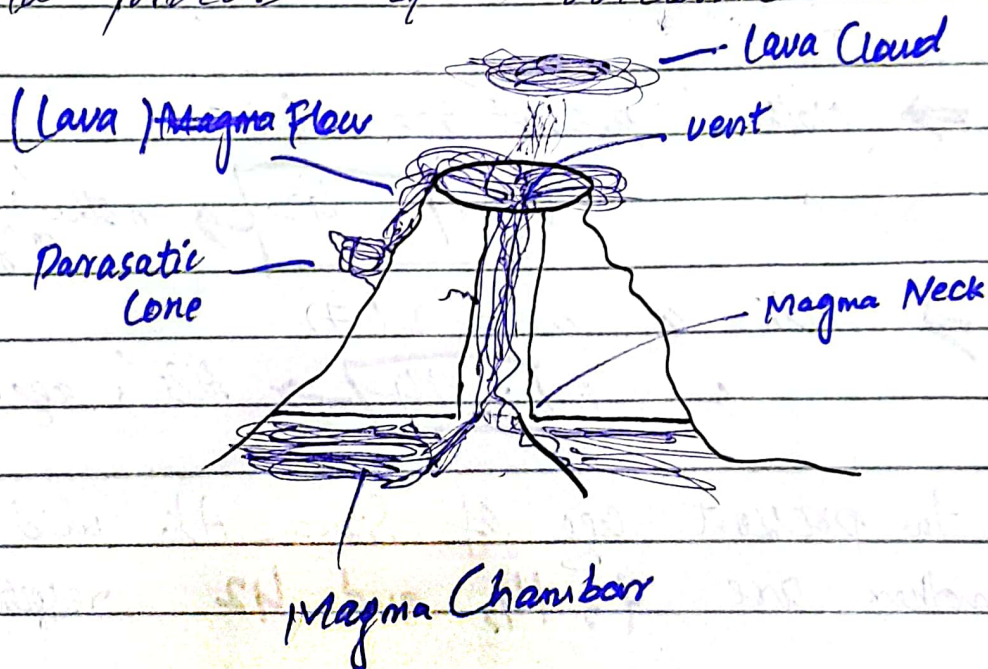 process of
Lava Cloud
(Lava) Magma Flow
vent
Parasatic
Cone
Magma Neck
Magma Chambar